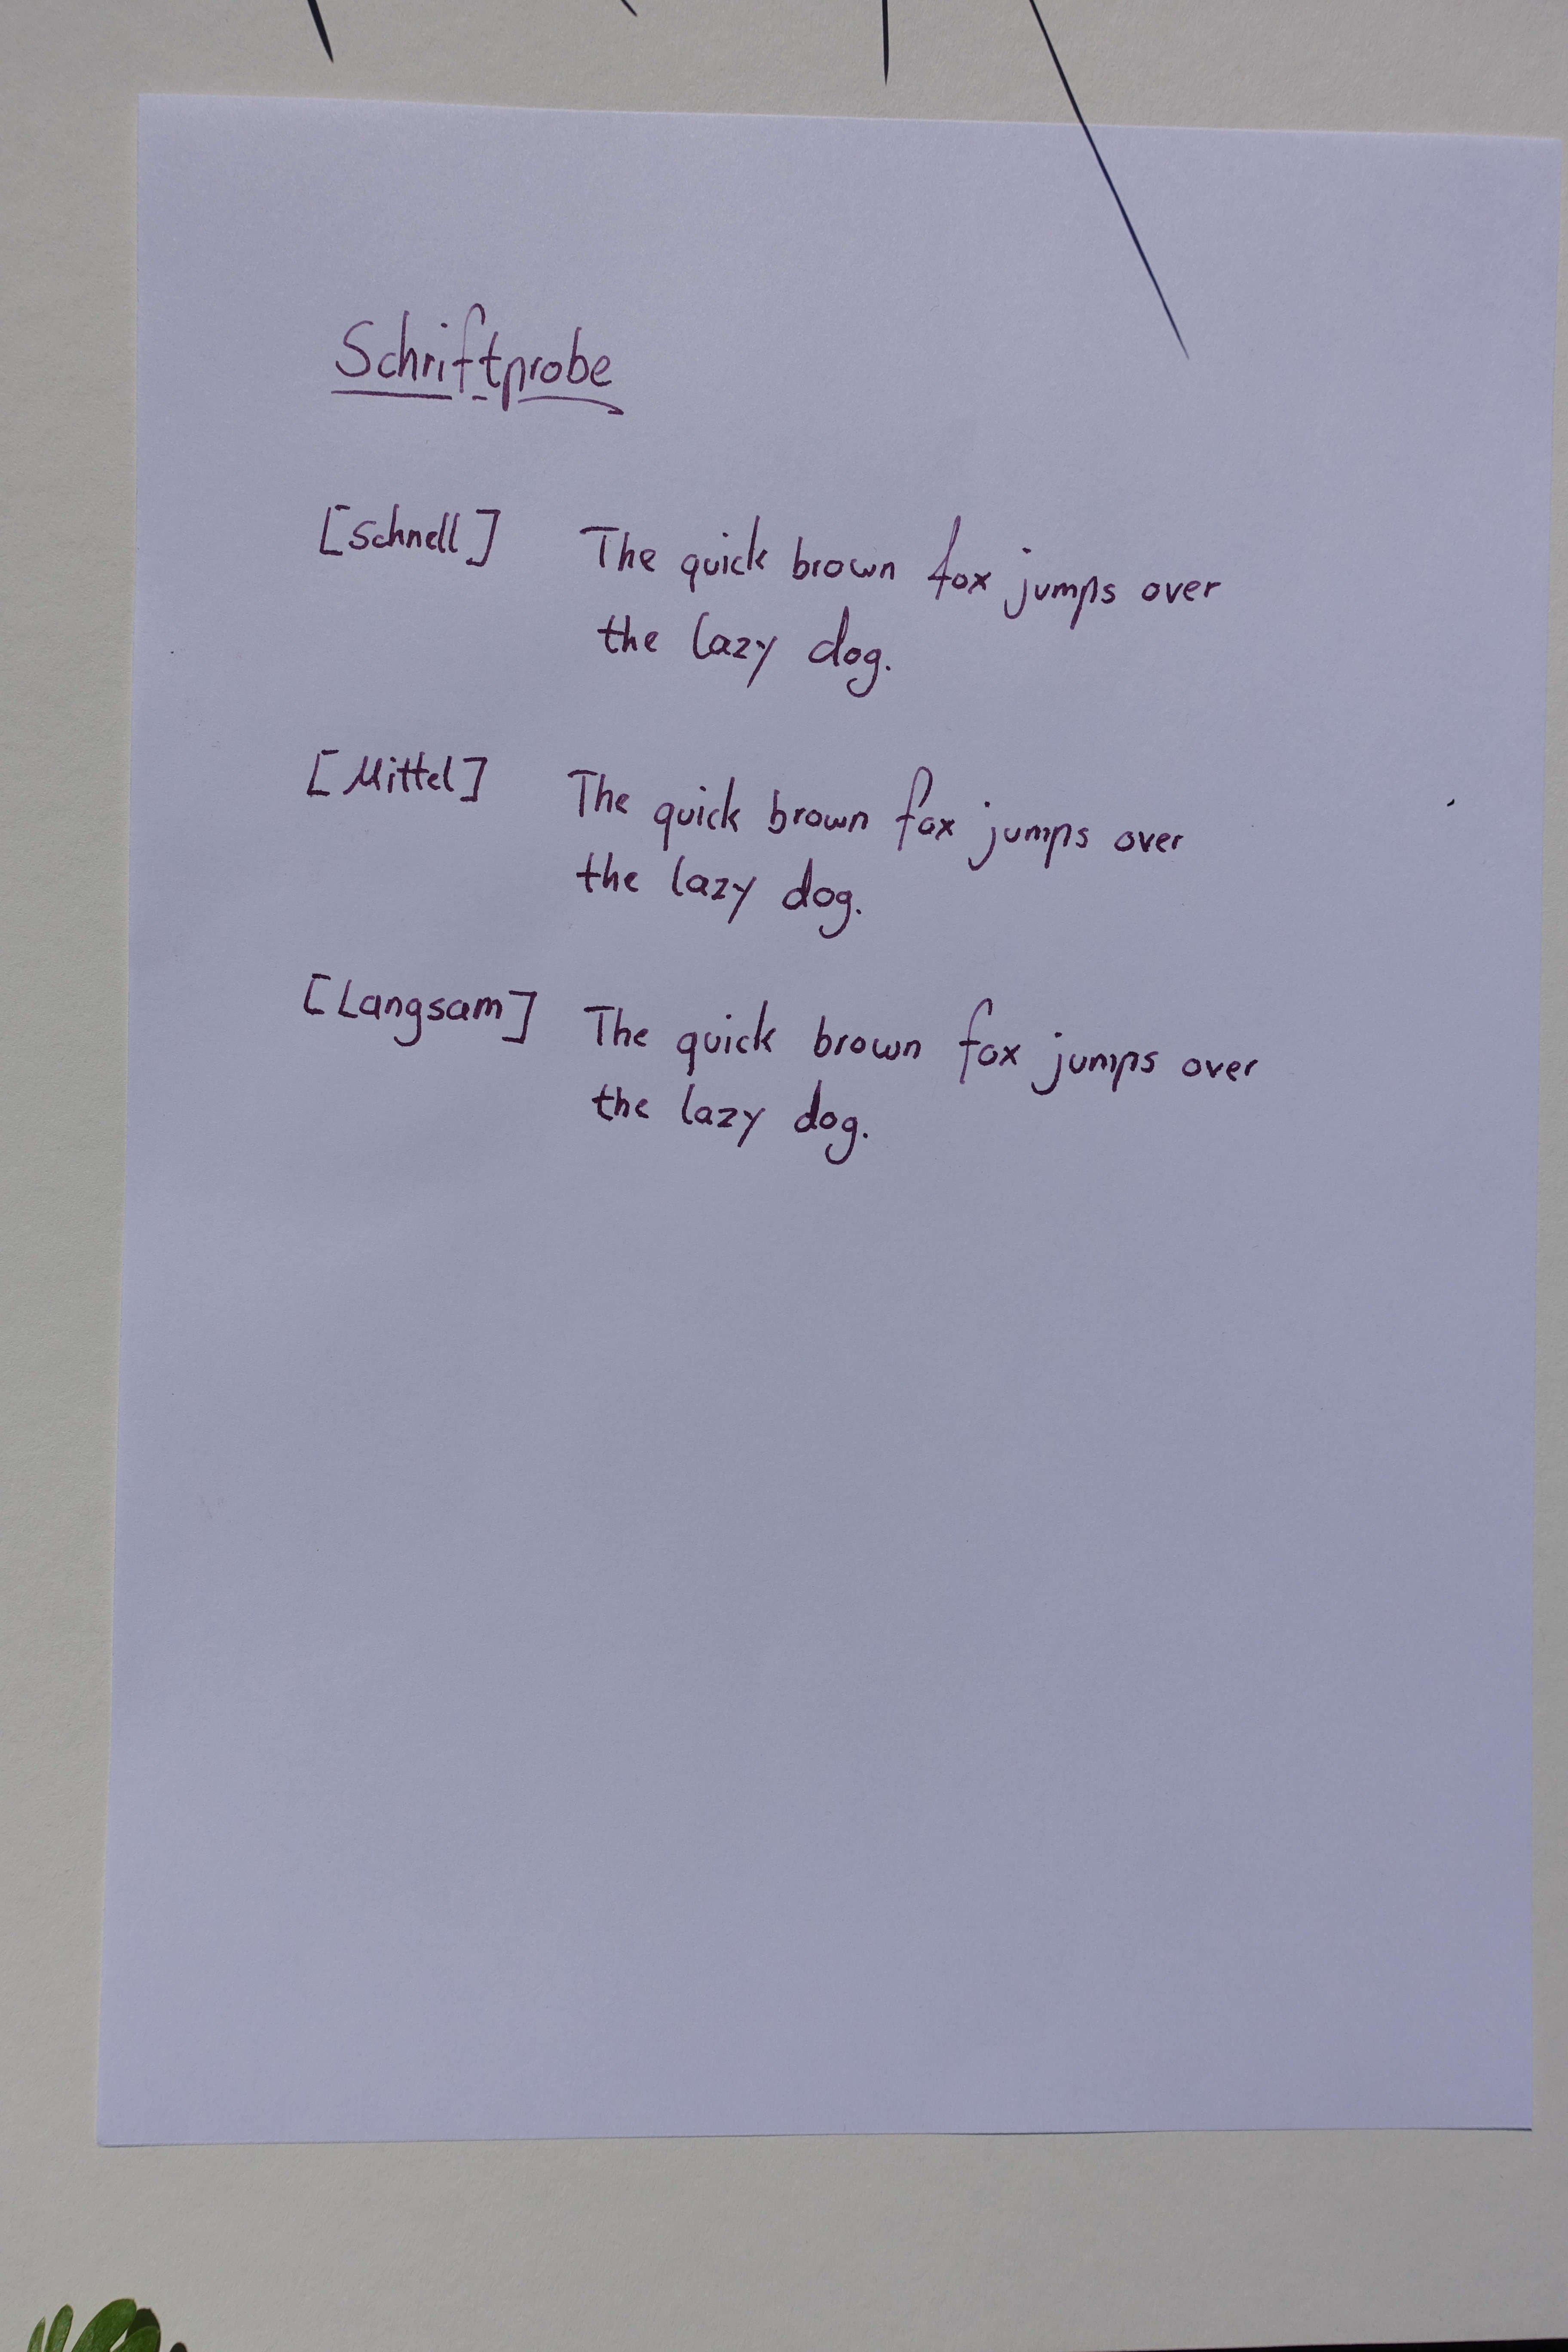 Schriftprobe
[Schnell] The quick brown fox jumps over
the lazy dog.
[Mittel] The quick brown fox jumps over
the lazy dog.
[Langsam] The quick brown fox jumps over
the lazy dog.